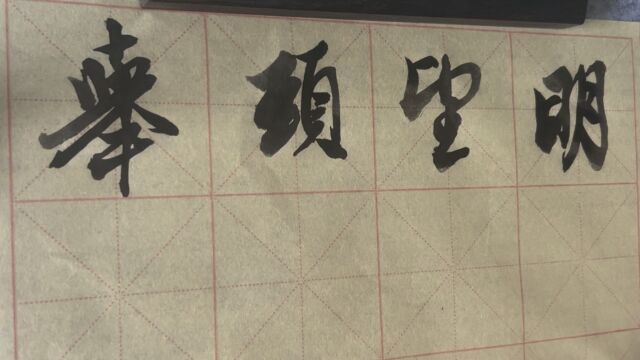 舉頭望明